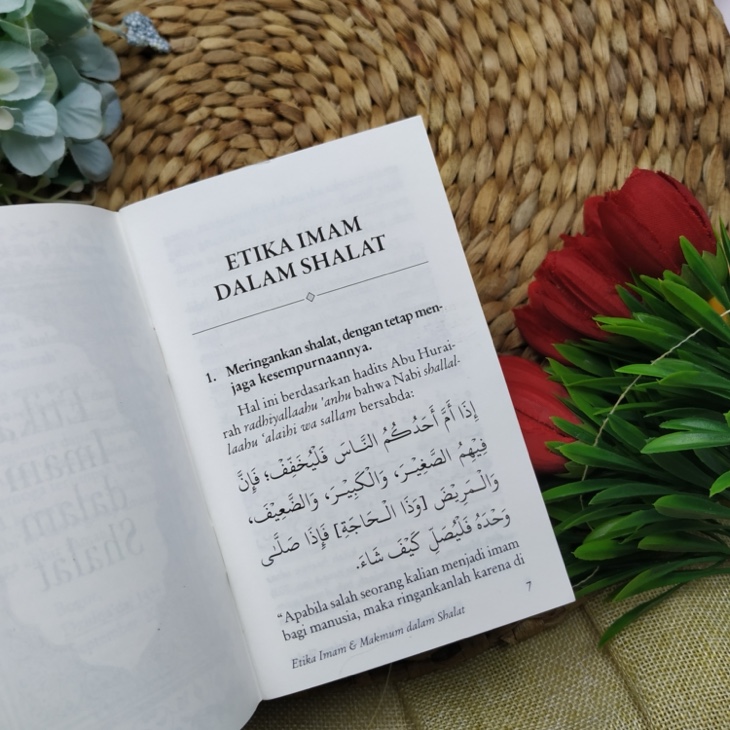 ETIKA IMAM
DALAM SHALAT
1. Meringankan shalat, dengan tetap men-
jaga kesempurnaannya.
Hal ini berdasarkan hadits Abu Hurai-
rah radhiyallaahu 'anhu bahwa Nabi shallal-
laahu 'alaihi wa sallam bersabda:
إِذَا أَمَّ أَحَدُكُمُ النَّاسَ فَلْيُخَفِّفْ؛ فَإِنَّ
فِيْهِمُ الصَّغِيْرَ، وَالْكَبِيْرَ، وَالضَّعِيْفَ،
وَالْمَرِيْضَ [وَذَا الْحَاجَةِ] فَإِذَا صَلَّى
وَحْدَهُ فَلْيُصَلِّ كَيْفَ شَاءَ.
"Apabila salah seorang kalian menjadi imam
bagi manusia, maka ringankanlah karena di
Etika Imam & Makmum dalam Shalat
7